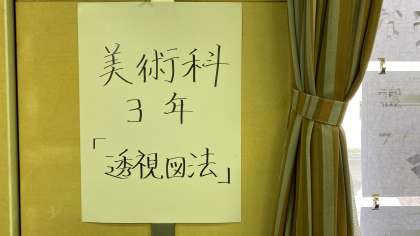 美術科
3年
「透視図法」